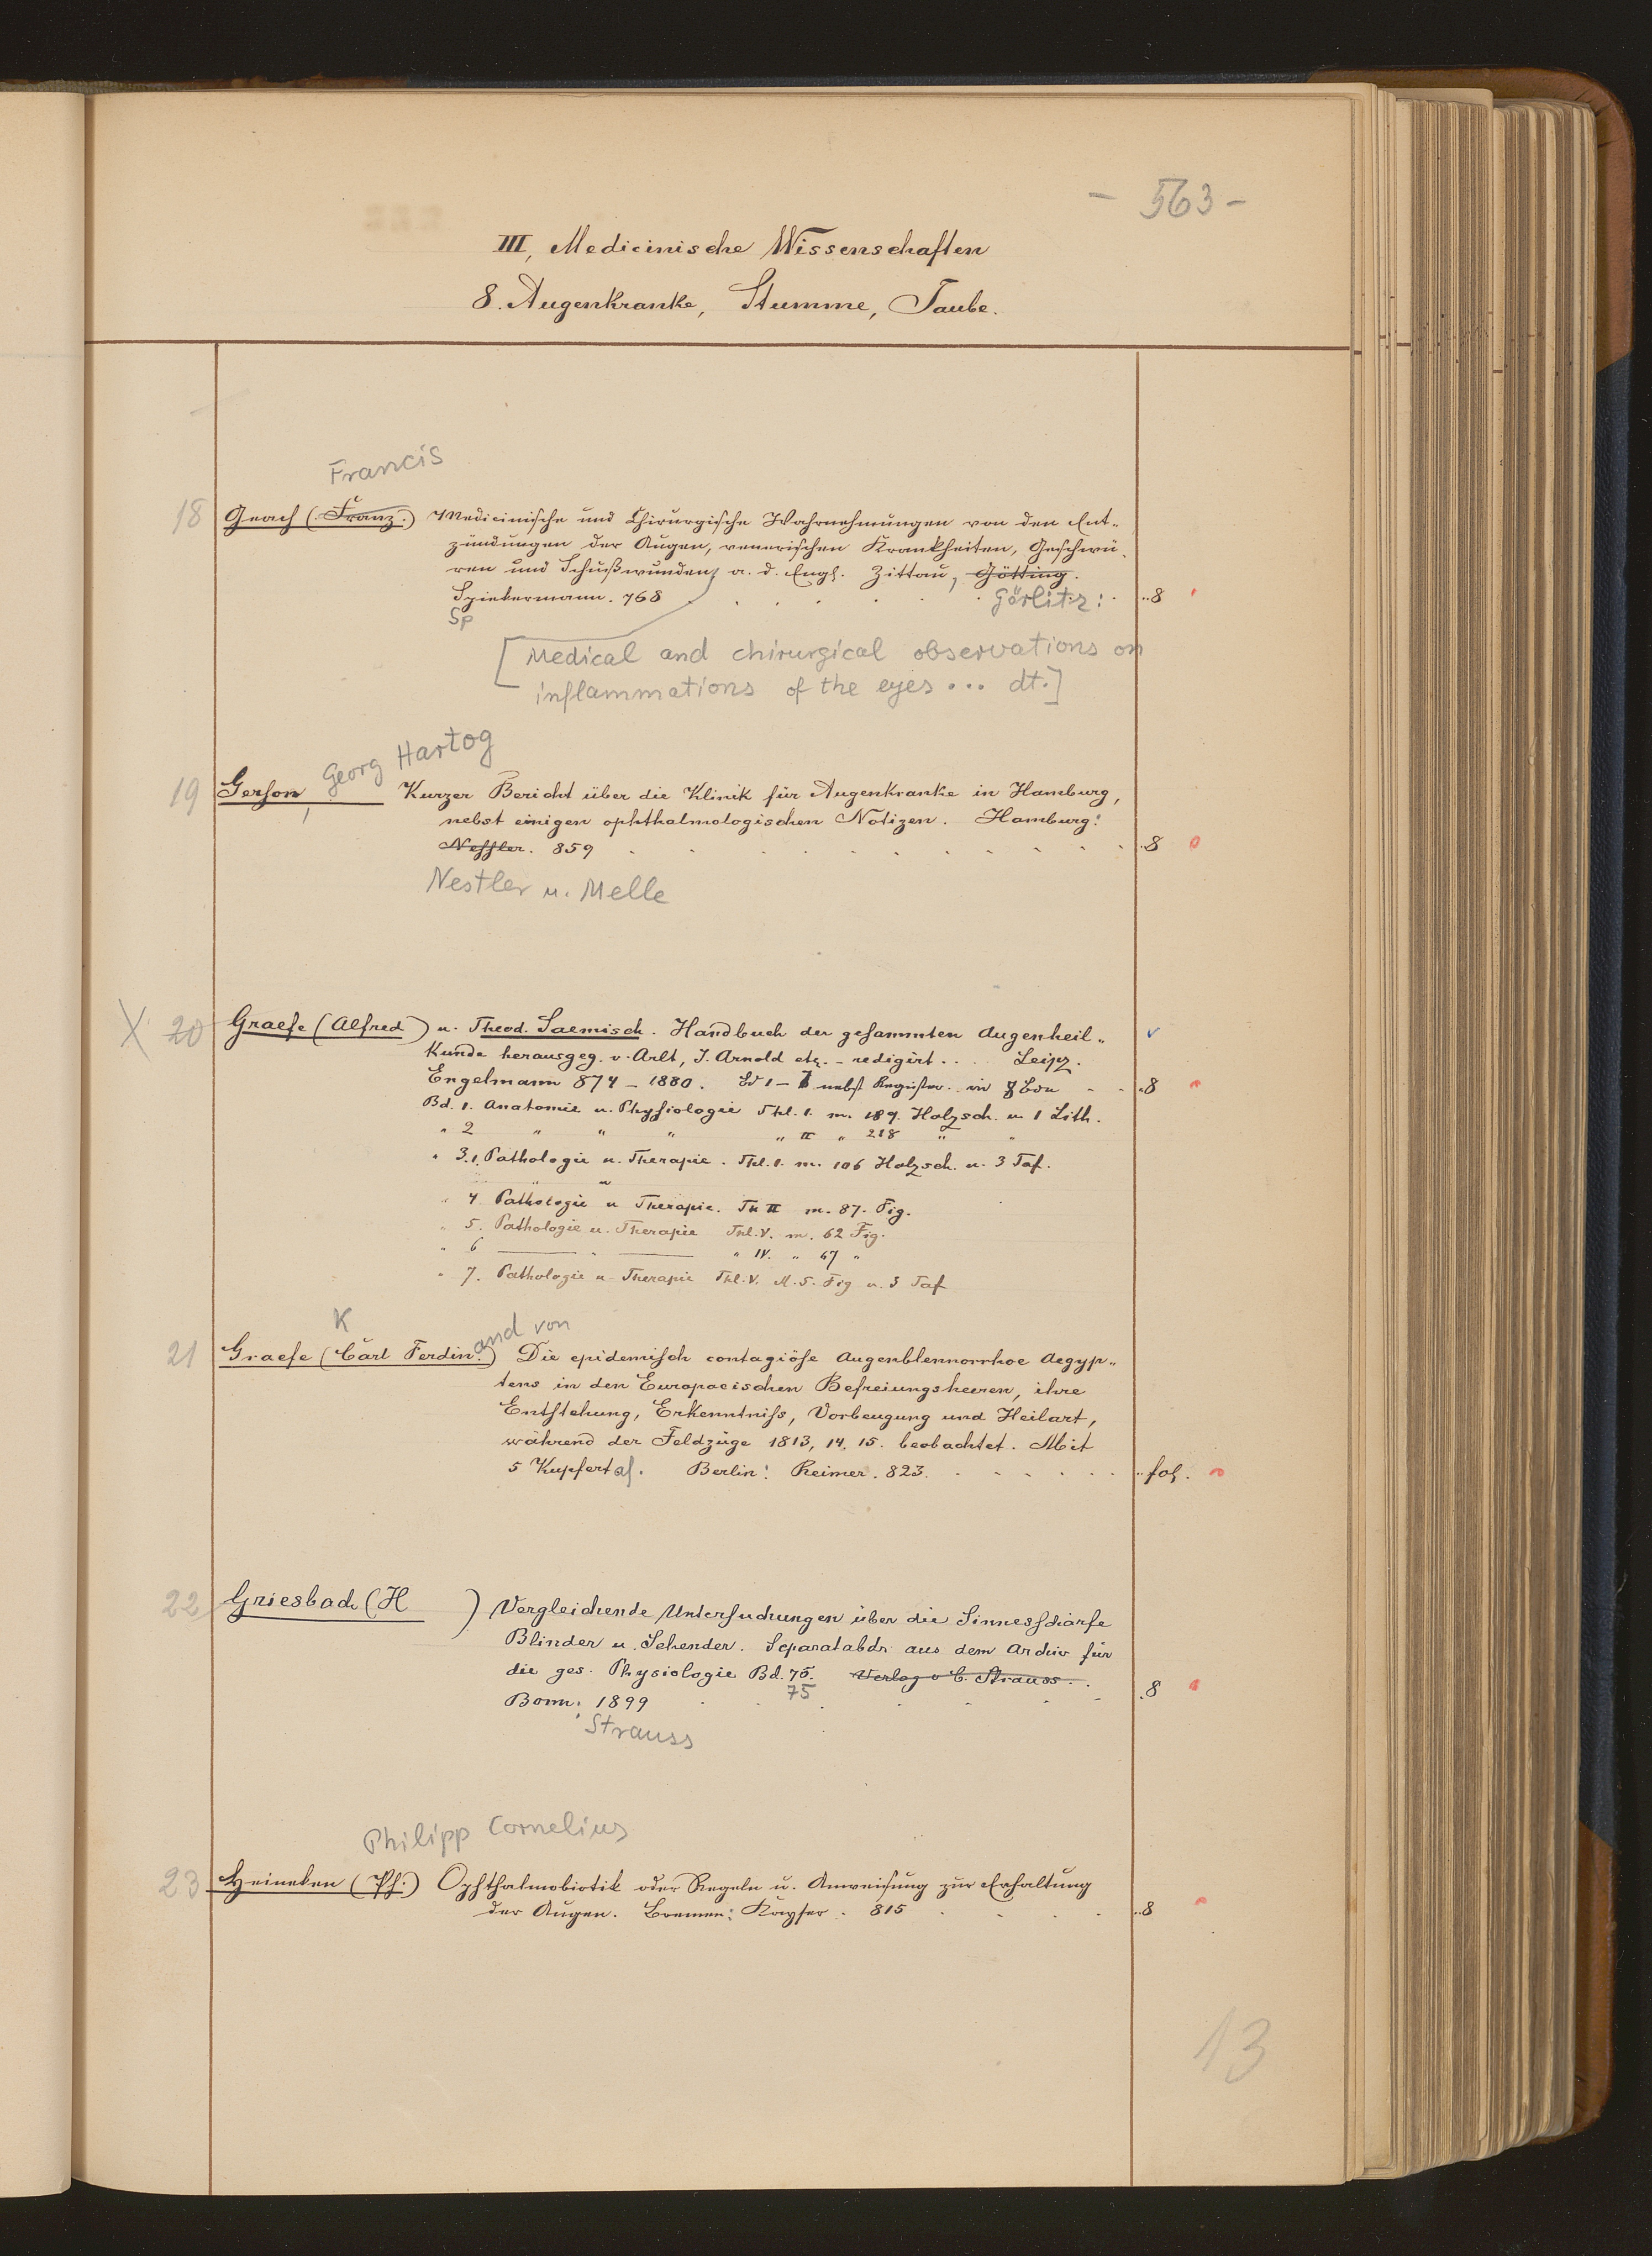 - 563 -
III, Medicinische Wissenschaften
8. Augenkranke, Stumme, Taube.
Francis
18 Geach (Franz.) Medicinische und Chirurgische Wahrnehmungen von den Ent-
zündungen der Augen, venerischen Krankheiten, Geschwü-
ren und Schußwunden, a. d. Engl. Zittau, Götting.
Spiekermann. 768 Görlitz: 8
Sp
[Medical and chirurgical observations on
inflammations of the eyes ... dt.]
Georg Hartog
19 Gerson, Kurzer Bericht über die Klinik für Augenkranke in Hamburg,
nebst einigen ophthalmologischen Notizen. Hamburg:
Nessler. 859 8
Nestler u. Melle
X 20 Graefe (Alfred) u. Theod. Saemisch. Handbuch der gesammten Augenheil-
kunde herausgeg. v. Arlt, J. Arnold etc. - redigirt .. Leipz.
Engelmann 874 - 1880. Bd 1 - 7 nebst Register. in 8 Bdn 8
Bd. 1. Anatomie u. Physiologie Thl. 1. m. 189. Holzsch. u 1 Lith.
" 2 " " " " II " 218 " "
" 3.1. Pathologie u. Therapie. Thl. 1. m. 106 Holzsch. u. 3 Taf.
" 4 Pathologie u Therapie. Th II m. 87. Fig.
" 5. Pathologie u. Therapie Thl. V. m. 62 Fig.
" 6 " IV. " 67 "
" 7. Pathologie u. Therapie Thl. V. M. 5. Fig u. 3 Taf
K and von
21 Graefe (Carl Ferdin.) Die epidemisch contagiöse Augenblennorrhoe Aegyp-
tens in den Europaeischen Befreiungsheeren, ihre
Entstehung, Erkenntniss, Vorbeugung und Heilart,
während der Feldzüge 1813, 14, 15. beobachtet. Mit
5 Kupfertaf. Berlin: Reimer. 823. fol.
22 Griesbach (H ) Vergleichende Untersuchungen über die Sinnesschärfe
Blinder u. Sehender. Separatabdr. aus dem Archiv für
die ges. Physiologie Bd. 75. Verlag v E. Strauss.
75
Bonn: 1899 8
Strauss
Philipp Cornelius
23 Heineken (Ph.) Ophthalmobiotik oder Regeln u. Anweisung zur Erhaltung
der Augen. Bremen: Kayser. 815 8
13